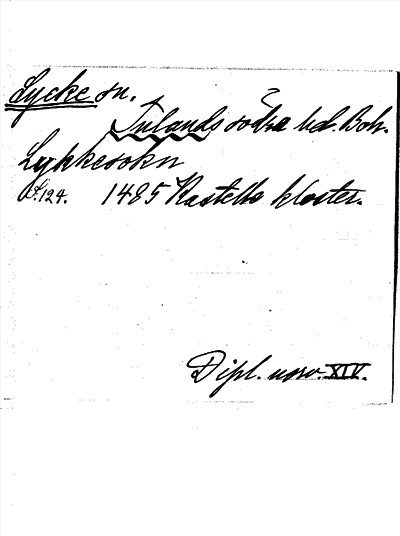 Lycke sn.
Inlands södra hd. Boh.
Lykkesokn
S. 124. 1485 Kastella kloster.
Dipl. norv. XIV.